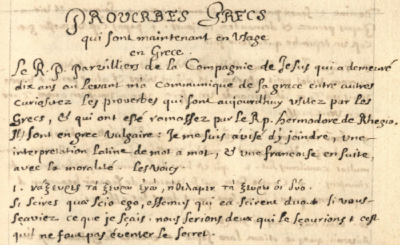 PROUERBES GRECS
qui sont maintenant en Usage
en Grece.
Le R. P. Parvilliers de la Compagnie de Jesus qui a demeuré
dix ans au levant ma Communiqué de sa grace entre autres
curiositez les proverbes qui sont aujourdhuy usitez par les
Grecs, et qui ont esté ramassez par le R.p. hermodore de Rhegio.
Ils sont en grec vulgaire: Je me suis avisé dj joindre, une
interpretation latine de mot a mot, et une francoise en suite,
avec la moralité. les voicy.
1. τὰ ξευρω ἐγὼ, τὰ ξευρω οἱ δυο.
si scires quae scio ego, essemus qui ea scirent duo. si vous
sçaviez ce que je sçais, nous serions deux qui le sçaurions; c'est
qu'il ne faut pas éventer le secret.